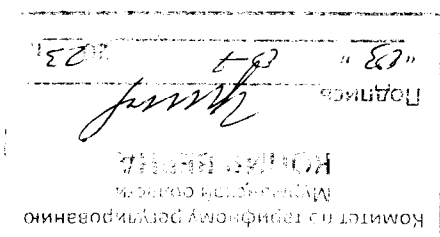 Комитет по тарифному регулированию
Мурманской области
КОПИЯ ВЕРНА
Подпись
"03" 07 2023 г.